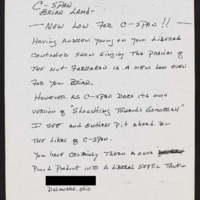 C-SPAN
BRIAN LAMB-
NEW LOW FOR C-SPAN!!
HAVING ANDREW YOUNG ON YOUR LIBERAL
CONTROLED SHOW SINGING THE PRAISES OF
THE NUT FARRAKAN IS A NEW LOW EVEN
FOR YOU BRIAN.
HOWEVER AS C-SPAN DOES ITS OWN
VERSION OF "SLOUCHING TOWARDS GOMORRAH"
I SEE AN ENDLESS PIT AHEAD FOR
THE LIKES OF C-SPAN.
YOU HAVE CERTAINLY TAKEN A ONCE
PROUD PRODUCT INTO A LIBERAL SEPTIC TANK-
DELAWARE, OHIO